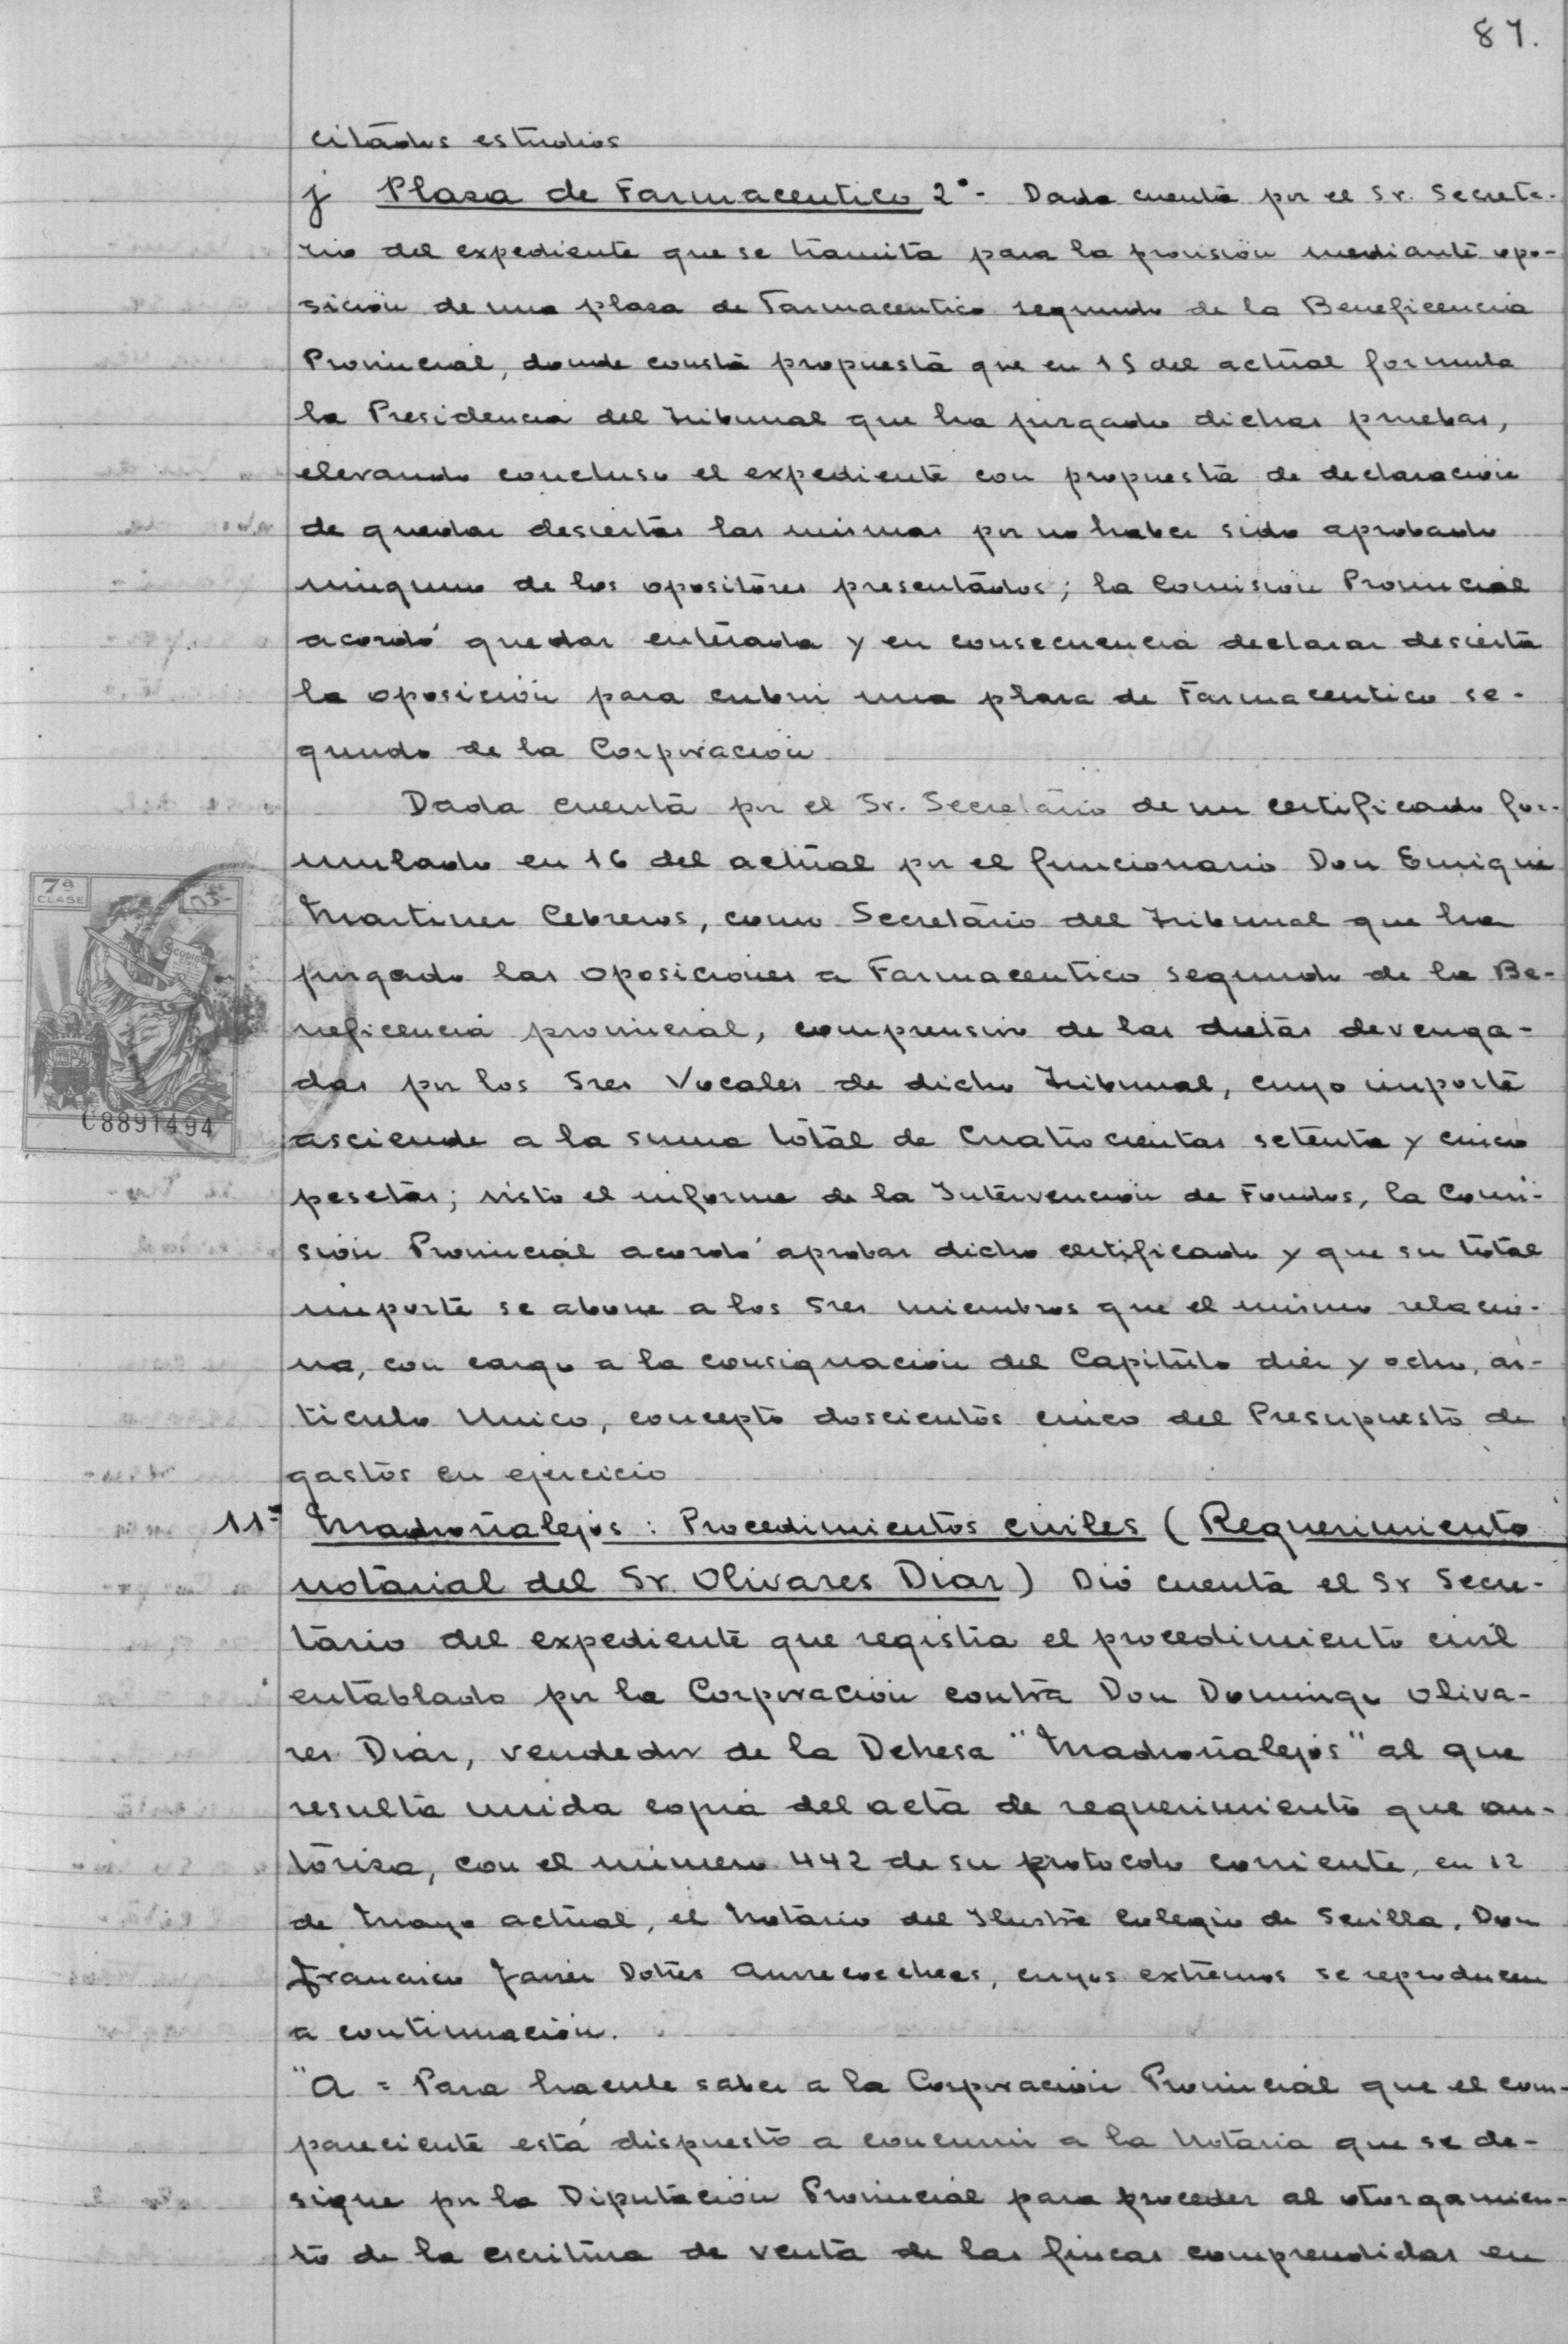 87.
citados estudios
j Plaza de Farmaceutico 2º - Dada cuenta por el Sr. Secreta-
rio del expediente que se tramita para la provisión mediante opo-
sición de una plaza de Farmaceutico segundo de la Beneficencia
Provincial, donde consta propuesta que en 15 del actual formula
la Presidencia del Tribunal que ha juzgado dichas pruebas,
elevando concluso el expediente con propuesta de declaración
de quedar desiertas las mismas por no haber sido aprobado
ninguno de los opositores presentados; la Comisión Provincial
acordó quedar enterada y en consecuencia declarar desierta
la oposición para cubrir una plaza de Farmaceutico se-
gundo de la Corporación
Dada cuenta por el Sr. Secretario de un certificado for-
mulado en 16 del actual por el funcionario Don Enrique
Martinez Cebreros, como Secretario del Tribunal que ha
juzgado las oposiciones a Farmaceutico segundo de la Be-
neficencia provincial, comprensivo de las dietas devenga-
das por los Sres Vocales de dicho Tribunal, cuyo importe
asciende a la suma total de Cuatrocientas setenta y cinco
pesetas; visto el informe de la Intervención de Fondos, la Comi-
sión Provincial acordó aprobar dicho certificado y que su total
importe se abone a los Sres miembros que el mismo relacio-
na, con cargo a la consignación del Capitulo diez y ocho, ar-
ticulo Unico, concepto doscientos cinco del Presupuesto de
gastos en ejercicio
7ª
CLASE
C8891494
11º Madroñalejos: Procedimientos civiles (Requerimiento
notarial del Sr. Olivares Diaz) Dió cuenta el Sr Secre-
tario del expediente que registra el procedimiento civil
entablado por la Corporación contra Don Domingo Oliva-
res Diaz, vendedor de la Dehesa "Madroñalejos" al que
resulta unida copia del acta de requerimiento que au-
toriza, con el número 442 de su protocolo corriente, en 12
de Mayo actual, el Notario del Ilustre Colegio de Sevilla, Don
Francisco Javier Dotres Aurrecoechea, cuyos extremos se reproducen
a continuación.
"A = Para hacerle saber a la Corporación Provincial que el com-
pareciente está dispuesto a concurrir a la Notaria que se de-
signe por la Diputación Provincial para proceder al otorgamien-
to de la escritura de venta de las fincas comprendidas en